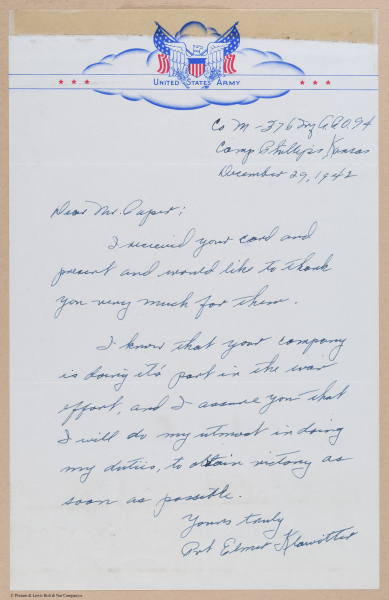 UNITED STATES ARMY
Co M - 376 Inf A.P.O. 94
Camp Phillips, Kansas
December 29, 1942
Dear Mr. Papert:
I received your card and
present and would like to thank
you very much for them.
I know that your company
is doing it's part in the war
effort, and I assure you that
I will do my utmost in doing
my duties, to obtain victory as
soon as possible.
Yours truly
Pvt Elmer Klawitter